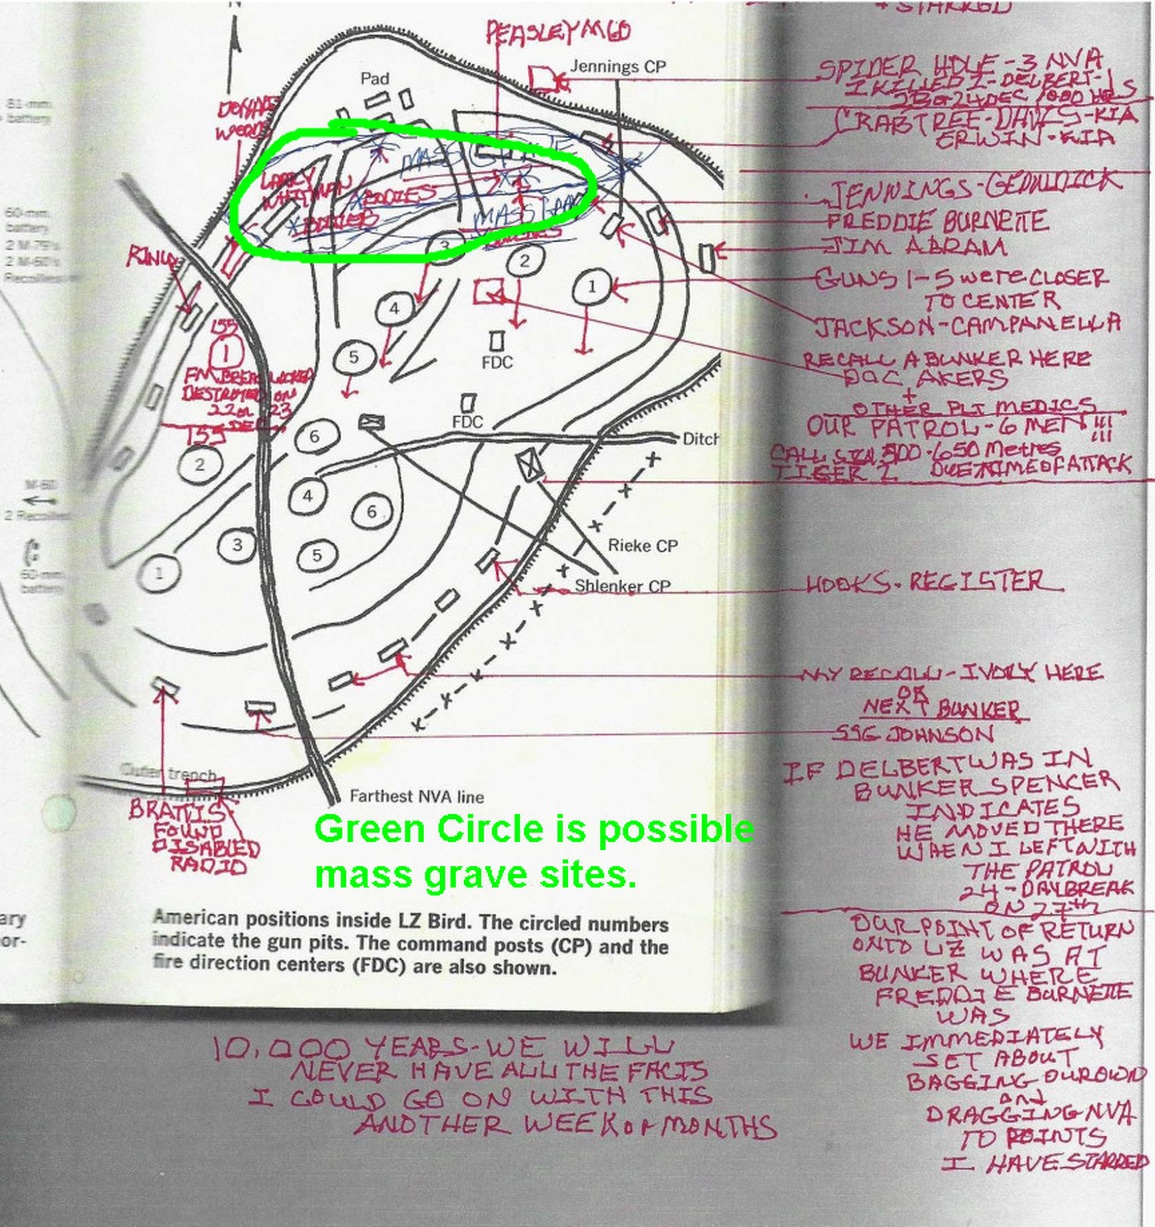 + STARRED
PEASLEY M60
Jennings CP
Pad
SPIDER HOLE - 3 NVA
I KILLED 1 - DELBERT - 1
CRABTREE - DAVIS - KIA
ERWIN - KIA
81-mm.
battery
MASS GRAVE
LARRY
WHITMAN
BODIES
BODIES
MASS
JENNINGS - GEDULDICK
FREDDIE BURNETTE
JIM ABRAM
60-mm.
battery
2 M-79's
2 M-60's
Recoilless
3
2
1
4
5
FDC
GUNS 1-5 WERE CLOSER
TO CENTER
JACKSON - CAMPANELLA
155
1
DESTROYED ON
22 or 23
DEC
155
RECALL A BUNKER HERE
DOC AKERS
+
OTHER PLT MEDICS
OUR PATROL - 6 MEN !!!
CALL SIGN 500-650 Metres
TIGER 2 OUT @ TIME OF ATTACK
FDC
Ditch
6
2
4
6
3
5
1
M-60
2 Recoilless
60-mm.
battery
Rieke CP
Shlenker CP
HOOKS - REGISTER
MY RECALL - IVORY HERE
OR
NEXT BUNKER
SSG JOHNSON
Outer trench
Farthest NVA line
BRATTIS
FOUND
DISABLED
RADIO
IF DELBERT WAS IN
BUNKER SPENCER
INDICATES
HE MOVED THERE
WHEN I LEFT WITH
THE PATROL
24 - DAYBREAK
ON 27th
Green Circle is possible
mass grave sites.
American positions inside LZ Bird. The circled numbers
indicate the gun pits. The command posts (CP) and the
fire direction centers (FDC) are also shown.
ary
or-
OUR POINT OF RETURN
ONTO LZ WAS AT
BUNKER WHERE
FREDDIE BURNETTE
WAS
WE IMMEDIATELY
SET ABOUT
BAGGING OUR OWN
and
DRAGGING NVA
TO POINTS
I HAVE STARRED
10,000 YEARS - WE WILL
NEVER HAVE ALL THE FACTS
I COULD GO ON WITH THIS
ANOTHER WEEK or MONTHS